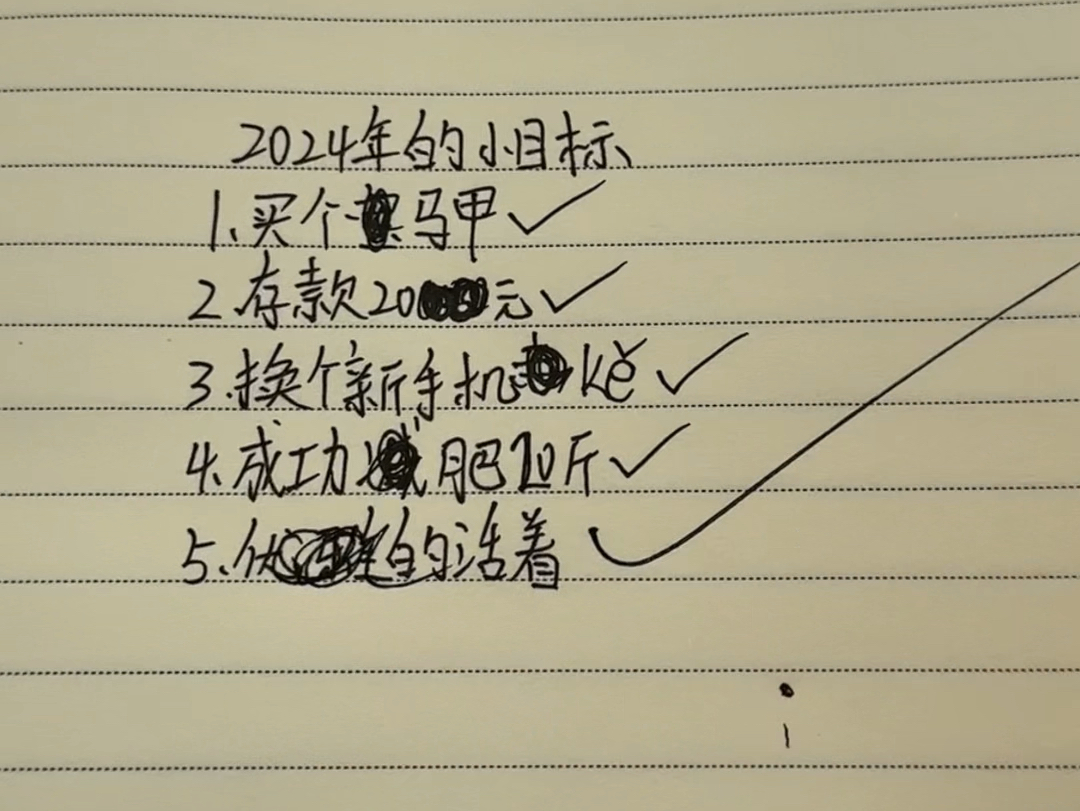 2024年的小目标
1.买个马甲
2.存款20元
3.换个新手机ké
4.成功肥20斤
5.的活着